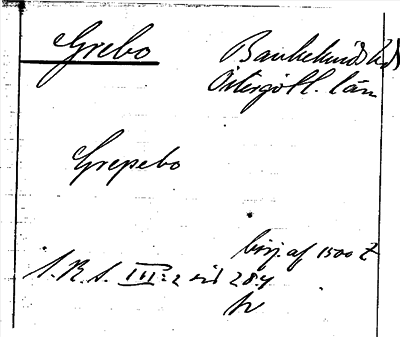 Grebo
Bankekinds hd
Östergötl. län
Grepebo
börj. af 1500 t
S.R.S. III:2 sid 284